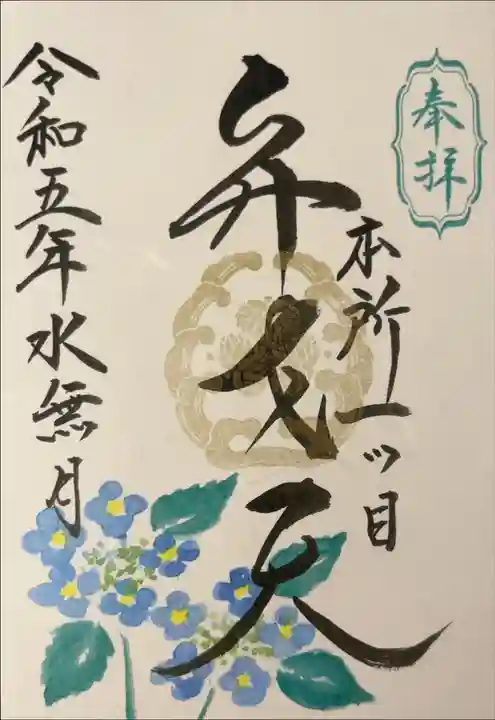 奉拝
本所一ツ目
弁才天
令和五年水無月